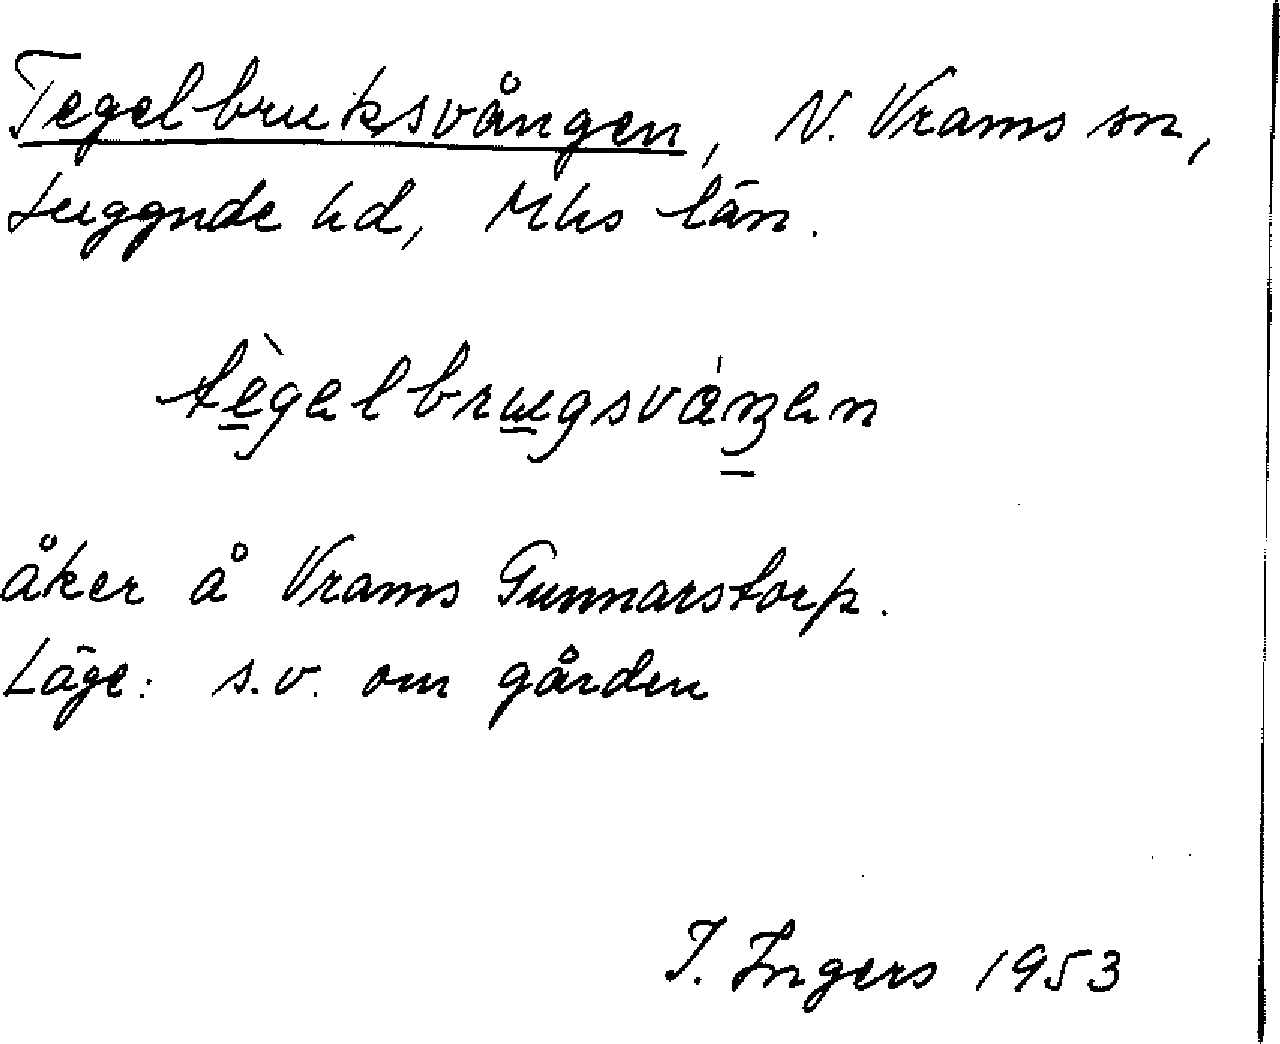 Tegelbruksvången, N. Vrams sn,
Luggude hd, Mhs län.
tègelbrugsváŋen
åker å Vrams Gunnarstorp.
Läge: s.v. om gården
I. Ingers 1953